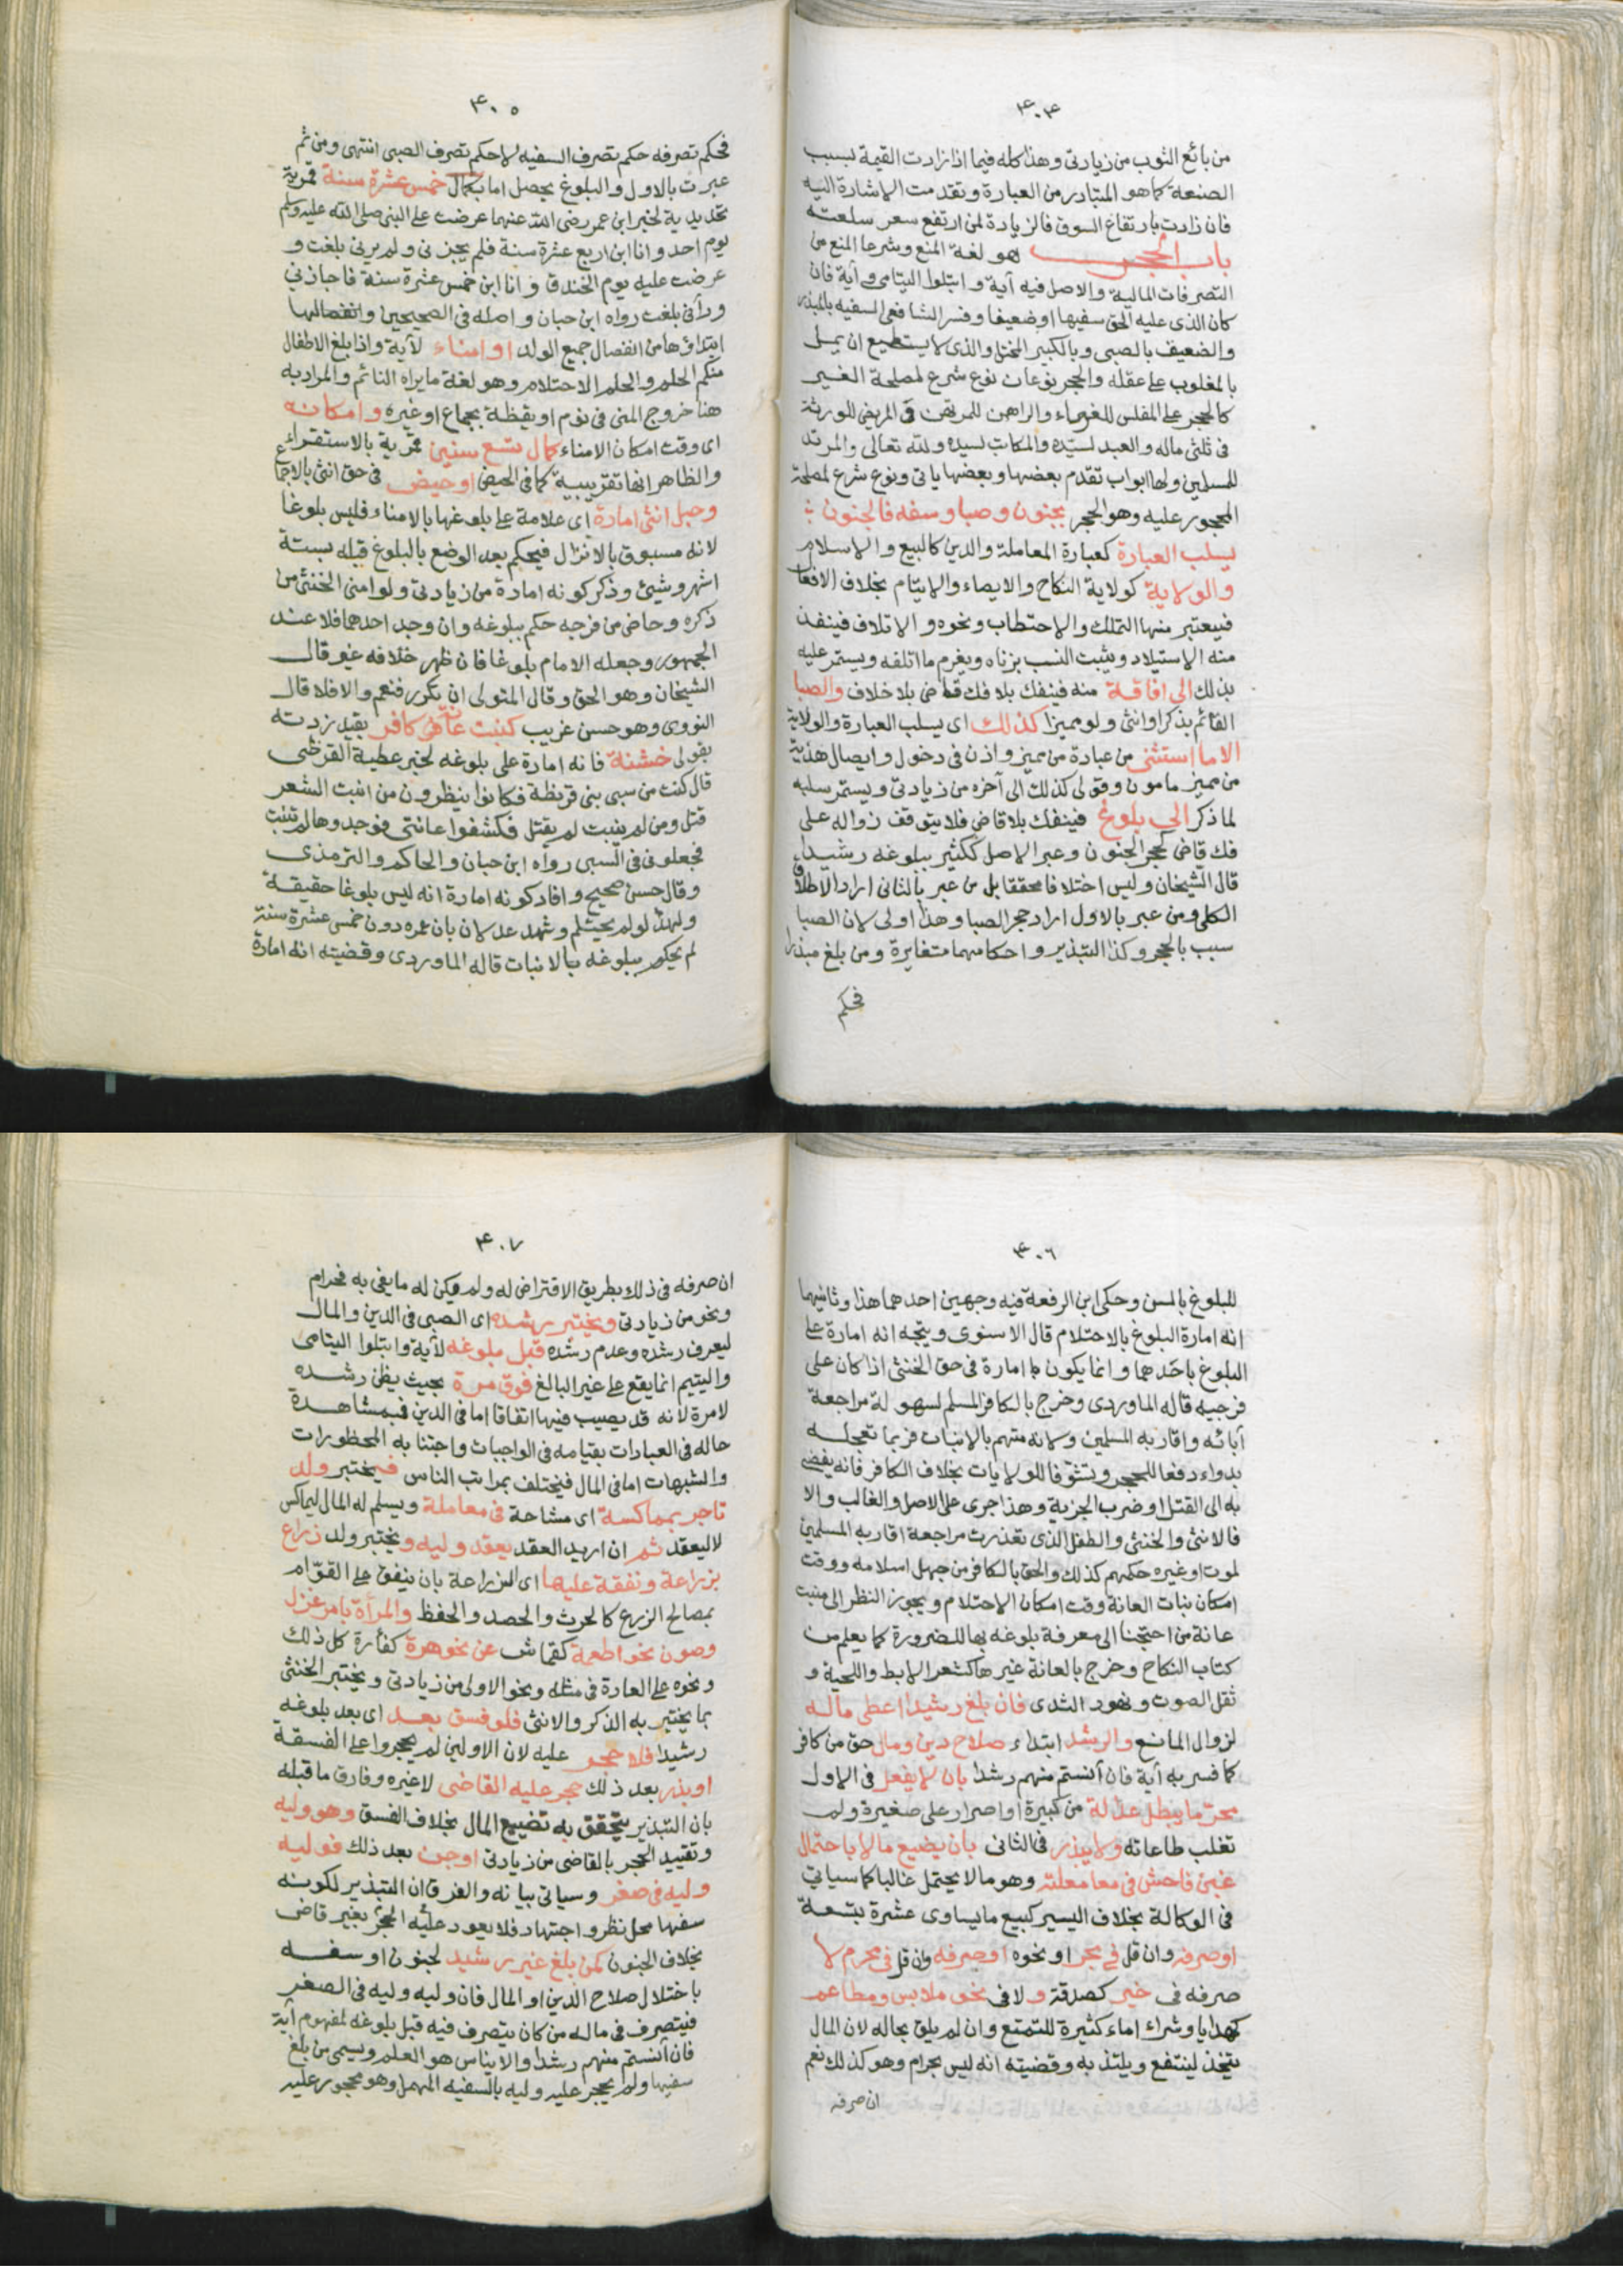 ۴۰۴
من بائع الثوب من زيادتى وهذا كله فيما اذا زادت القيمة بسبب
الصنعة كما هو المتبادر من العبارة وتقدمت الاشارة اليه
فان زادت بارتفاع السوق فالزيادة لمن ارتفع سعر سلعته
باب الحجر هو لغة المنع وشرعا المنع من
التصرفات المالية والاصل فيه آية وابتلوا اليتامى وآية فان
كان الذى عليه الحق سفيها اوضعيفا وفسر الشافعى السفيه بالمبذر
والضعيف بالصبى وبالكبير المختل والذى لا يستطيع ان يمل
بالمغلوب على عقله والحجر نوعان نوع شرع لمصلحة الغير
كالحجر على المفلس للغرماء والراهن للمرتهن فى المريض للورثة
فى ثلثى ماله والعبد لسيده والمكاتب لسيده ولله تعالى والمرتد
للمسلمين ولها ابواب تقدم بعضها وبعضها ياتى ونوع شرع لمصلحة
المحجور عليه وهو الحجر بجنون وصبا وسفه فالجنون
يسلب العبارة كعبارة المعاملة والدين كالبيع والاسلام
والولاية كولاية النكاح والايصاء والايتام بخلاف الافعال
فيعتبر منها التملك والاحتطاب ونحوه والاتلاف فينفذ
منه الاستيلاد ويثبت النسب بزناه ويغرم ما اتلفه ويستمر عليه
بذلك الى افاقة منه فينفك بلا فك قاض بلا خلاف والصبا
القائم بذكر اوانثى ولو مميزا كذلك اى يسلب العبارة والولاية
الا ما استثنى من عبادة من مميز واذن فى دخول وايصال هدية
من مميز مامون وقولى كذلك الى آخره من زيادتى ويستمر سلبه
لما ذكر الى بلوغ فينفك بلا قاض فلا يتوقف زواله على
فك قاض كحجر الجنون وعبر الاصل ككثير ببلوغه رشيدا
قال الشيخان وليس اختلافا محققا بل من عبر بالثانى اراد الاطلاق
الكلى ومن عبر بالاول اراد حجر الصبا وهذا اولى لان الصبا
سبب بالحجر وكذا التبذير واحكامهما متغايرة ومن بلغ مبذرا
فحكم
۴۰۵
فحكم تصرفه حكم تصرف السفيه لا حكم تصرف الصبى انتهى ومن ثم
عبرت بالاول والبلوغ يحصل اما بكمال خمس عشرة سنة قمرية
تحديدية لخبر ابن عمر رضى الله عنهما عرضت على النبى صلى الله عليه وسلم
يوم احد وانا ابن اربع عشرة سنة فلم يجزنى ولم يرنى بلغت و
عرضت عليه يوم الخندق وانا ابن خمس عشرة سنة فاجازنى
ورآنى بلغت رواه ابن حبان واصله فى الصحيحين وانفصالها
ابتداؤها من انفصال جميع الولد او امناء لآية واذا بلغ الاطفال
منكم الحلم والحلم الاحتلام وهو لغة ما يراه النائم والمراد به
هنا خروج المنى فى نوم اويقظة بجماع اوغيره وامكانه
اى وقت امكان الامناء كمال تسع سنين قمرية بالاستقراء
والظاهر انها تقريبية كما فى الحيض اوحيض فى حق انثى بالاجماع
وحبل انثى امارة اى علامة على بلوغها بالامناء فليس بلوغا
لانه مسبوق بالانزال فيحكم بعد الوضع بالبلوغ قبله بستة
اشهر وشيئ وذكر كونه امارة من زيادتى ولو امنى الخنثى من
ذكره وحاض من فرجه حكم ببلوغه وان وجد احدهما فلا عند
الجمهور وجعله الامام بلوغا فان ظهر خلافه غير قال
الشيخان وهو الحق وقال المتولى ان تكرر فنعم والا فلا قال
النووى وهو حسن غريب كنبت عانة كافر بقيد زدته
بقولى خشنة فانه امارة على بلوغه لخبر عطية القرظى
قال كنت من سبى بنى قريظة فكانوا ينظرون من انبت الشعر
قتل ومن لم ينبت لم يقتل فكشفوا عانتى فوجدوها لم تنبت
فجعلونى فى السبى رواه ابن حبان والحاكم والترمذى
وقال حسن صحيح وافاد كونه امارة انه ليس بلوغا حقيقة
ولهذا لو لم يحتلم وشهد عدلان بان عمره دون خمس عشرة سنة
لم يحكم ببلوغه بالانبات قاله الماوردى وقضيته انه امارة
۴۰۶
للبلوغ بالسن وحكى ابن الرفعة فيه وجهين احدهما هذا وثانيهما
انه امارة البلوغ بالاحتلام قال الاسنوى ويتجه انه امارة على
البلوغ باحدهما وانما يكون امارة فى حق الخنثى اذا كان على
فرجيه قاله الماوردى وخرج بالكافر المسلم لسهولة مراجعة
آبائه واقاربه المسلمين ولانه متهم بالانبات فربما تعجله
بدواء دفعا للحجر وتشوفا للولايات بخلاف الكافر فانه يفضى
به الى القتل او ضرب الجزية وهذا جرى على الاصل والغالب والا
فالانثى والخنثى والطفل الذى تعذرت مراجعة اقاربه المسلمين
لموت اوغيره حكمهم كذلك والحق بالكافر من جهل اسلامه ووقت
امكان نبات العانة وقت امكان الاحتلام ويجوز النظر الى منبت
عانة من احتجنا الى معرفة بلوغه بها للضرورة كما يعلم من
كتاب النكاح وخرج بالعانة غيرها كشعر الابط واللحية و
ثقل الصوت ونهود الثدى فان بلغ رشيدا اعطى ماله
لزوال المانع والرشد ابتداء صلاح دين ومال حق من كافر
كما فسر به آية فان آنستم منهم رشدا بان لا يفعل فى الاول
محرما يبطل عدالة من كبيرة اواصرار على صغيرة ولم
تغلب طاعاته ولا يبذر فى الثانى بان يضيع مالا باحتمال
غبن فاحش فى معاملته وهو ما لا يحتمل غالبا كما سياتى
فى الوكالة بخلاف اليسير كبيع ما يساوى عشرة بتسعة
اورميه وان قل فى بحر او نحوه اوصرفه وان قل فى محرم لا
صرفه فى خير كصدقة ولا فى نحو ملابس ومطاعم
كهدايا وشراء اماء كثيرة للتمتع وان لم يلق بحاله لان المال
يتخذ لينتفع ويلتذ به وقضيته انه ليس بحرام وهو كذلك نعم
ان صرفه
۴۰۷
ان صرفه فى ذلك بطريق الاقتراض له ولم يكن له ما يفى به فحرام
ونحو من زيادتى ويختبر رشده اى الصبى فى الدين والمال
ليعرف رشده وعدم رشده قبل بلوغه لآية وابتلوا اليتامى
واليتيم انما يقع على غير البالغ فوق مرة بحيث يظن رشده
لا مرة لانه قد يصيب فيها اتفاقا اما فى الدين فبمشاهدة
حاله فى العبادات بقيامه فى الواجبات واجتنابه المحظورات
والشبهات اما فى المال فيختلف بمراتب الناس فيختبر ولد
تاجر بمماكسة اى مشاحة فى معاملة ويسلم له المال ليماكس
لا ليعقد ثم ان اريد العقد يعقد وليه ويختبر ولد زراع
بزراعة ونفقة عليها اى الزراعة بان ينفق على القوام
بمصالح الزرع كالحرث والحصد والحفظ والمرأة بامر غزل
وصون نحو اطعمة كقماش عن نحو هرة كفارة كل ذلك
ونحوه على العادة فى مثله ونحو الاولى من زيادتى ويختبر الخنثى
بما يختبر به الذكر والانثى فلو فسق بعد اى بعد بلوغه
رشيدا فلا حجر عليه لان الاولين لم يحجروا على الفسقة
اوبذر بعد ذلك حجر عليه القاضى لا غيره وفارق ما قبله
بان التبذير يتحقق به تضييع المال بخلاف الفسق وهو وليه
وتقييد الحجر بالقاضى من زيادتى اوجن بعد ذلك فوليه
وليه فى صغر وسياتى بيانه والفرق ان التبذير لكونه
سفها محل نظر واجتهاد فلا يعود عليه الحجر بغير قاض
بخلاف الجنون كمن بلغ غير رشيد لجنون او سفه
باختلال صلاح الدين او المال فان وليه وليه فى الصغر
فيتصرف فى ماله من كان يتصرف فيه قبل بلوغه لمفهوم آية
فان آنستم منهم رشدا والايناس هو العلم ويسمى من بلغ
سفيها ولم يحجر عليه وليه بالسفيه المهمل وهو محجور عليه